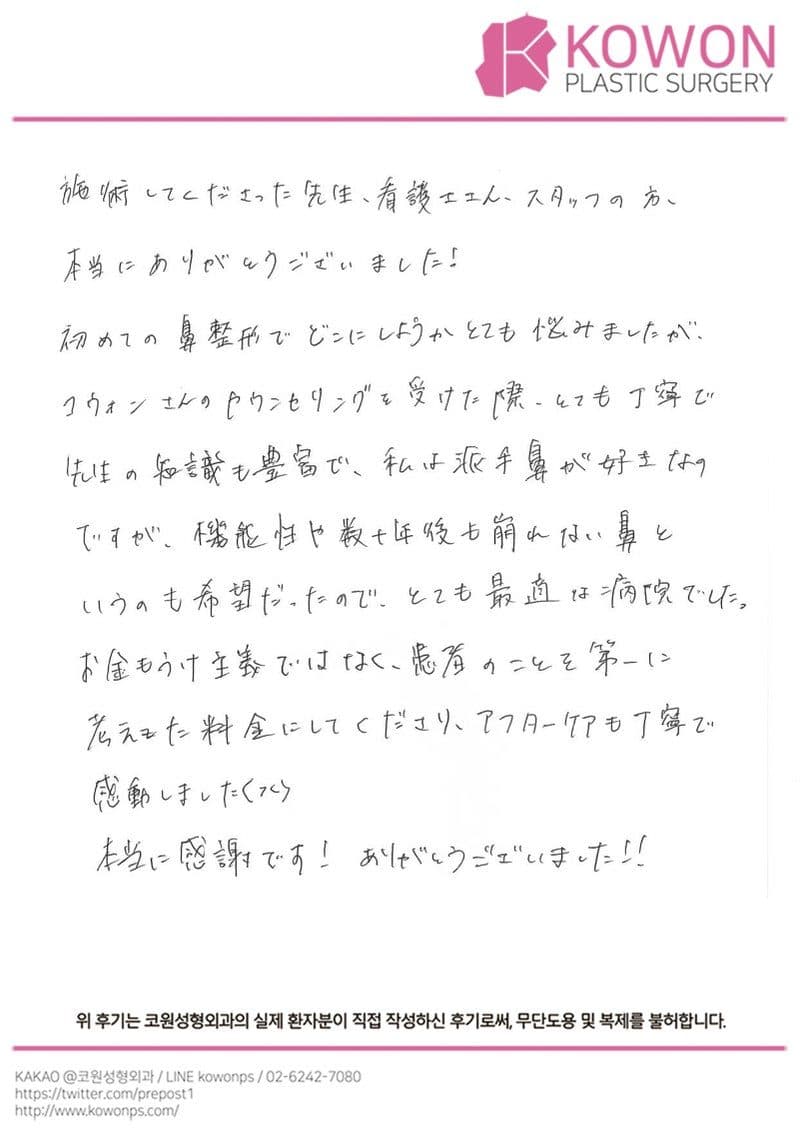 KOWON
PLASTIC SURGERY
施術してくださった先生、看護士さん、スタッフの方、
本当にありがとうございました!
初めての鼻整形でどこにしようかとても悩みましたが、
コウォンさんのカウンセリングを受けた際、とても丁寧で
先生の知識も豊富で、私は派手鼻が好きなの
ですが、機能性や数十年後も崩れない鼻と
いうのも希望だったので、とても最適な病院でした。
お金もうけ主義ではなく、患者のことを第一に
考えた料金にしてくださり、アフターケアも丁寧で
感動しました
本当に感謝です! ありがとうございました!!
위 후기는 코원성형외과의 실제 환자분이 직접 작성하신 후기로써, 무단도용 및 복제를 불허합니다.
KAKAO @코원성형외과 / LINE kowonps / 02-6242-7080
https://twitter.com/prepost1
http://www.kowonps.com/